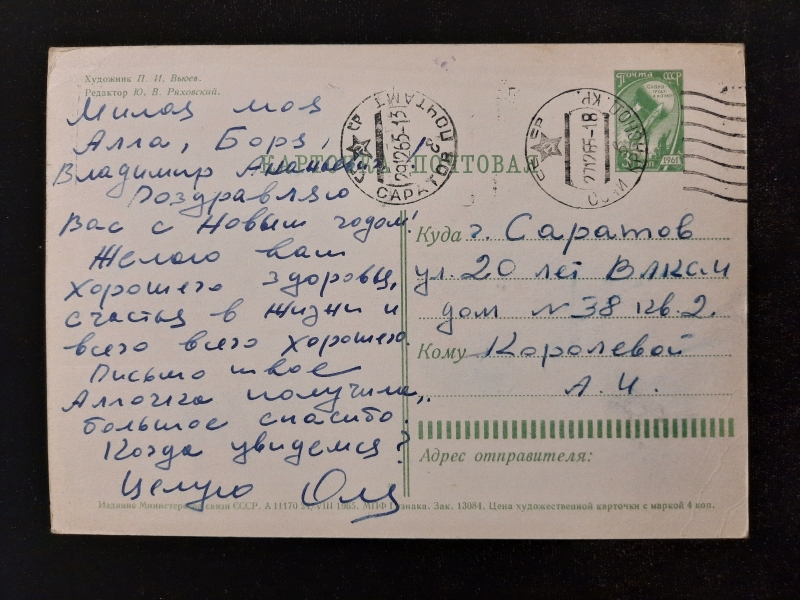 Художник П. И. Вьюев.
Редактор Ю. В. Ряховский.
Милая моя
Алла, Боря,
Владимир
Поздравляю
Вас с Новым годом!
Желаю вам
хорошего здоровья,
счастья в жизни и
всего всего хорошего.
Письмо твое
Аллочка получила,
большое спасибо.
Когда увидемся?
Целую Оля
КАРТОЧКА ПОЧТОВАЯ
СССР
САРАТОВ ПОЧТАМТ
291265-13
СССР
СОЧИ КРАСНОД. КР.
271265-18
ПОЧТА СССР
1961
Куда г. Саратов
ул. 20 лет ВЛКСМ
дом N 38 кв. 2.
Кому Королевой
А. И.
Адрес отправителя:
Издание Министерства связи СССР. А 11170 /VIII 1965. МПФ Гознака. Зак. 13084. Цена художественной карточки с маркой 4 коп.